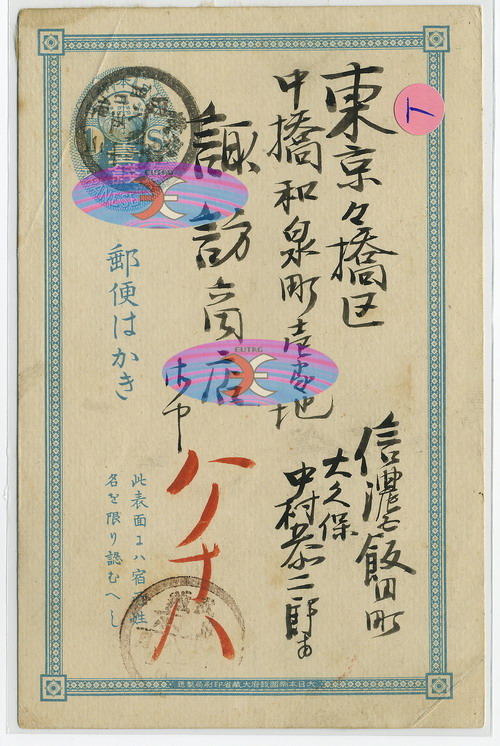 東京々橋区
中橋和泉町壱番地
諏訪商店
御中
信濃飯田町
大久保
中村恭二郎
ト
EUTRG
EUTRG
郵便はかき
此表面ニハ宿所姓
名を限り認むへし
ハノオハ
大日本帝國政府大蔵省印刷局製造